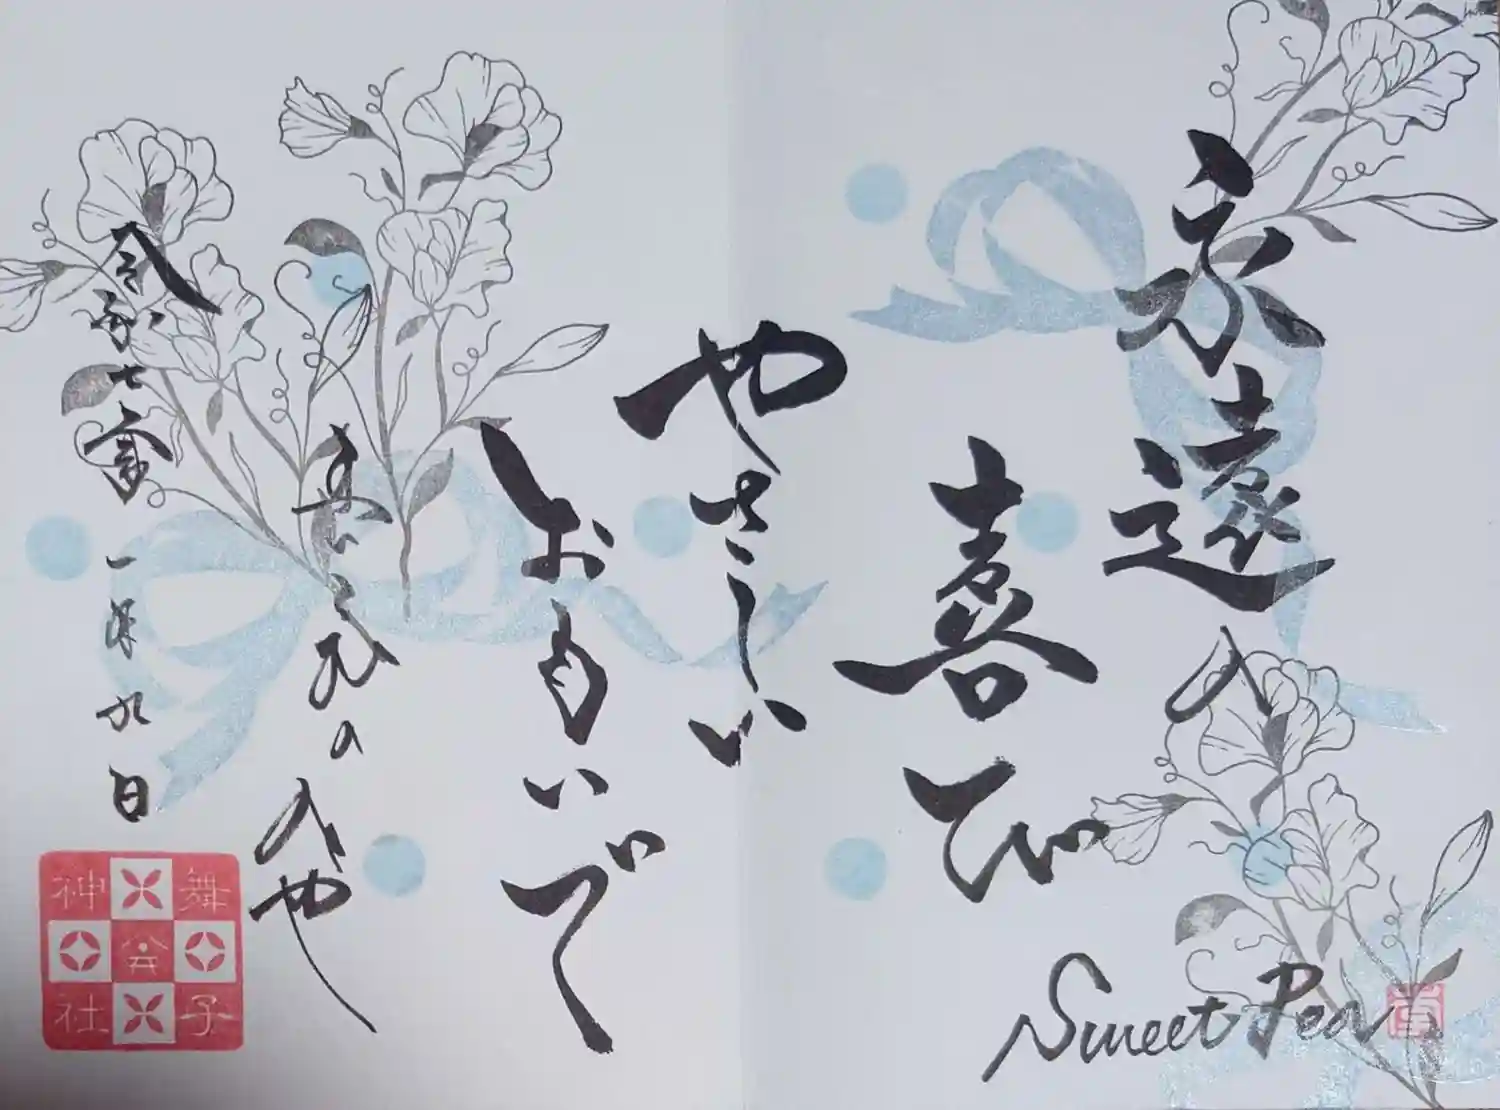 永遠の
喜び
Sweet Pea
やさしい
おもいで
まいこ
令和七年 一月九日
舞子
神社